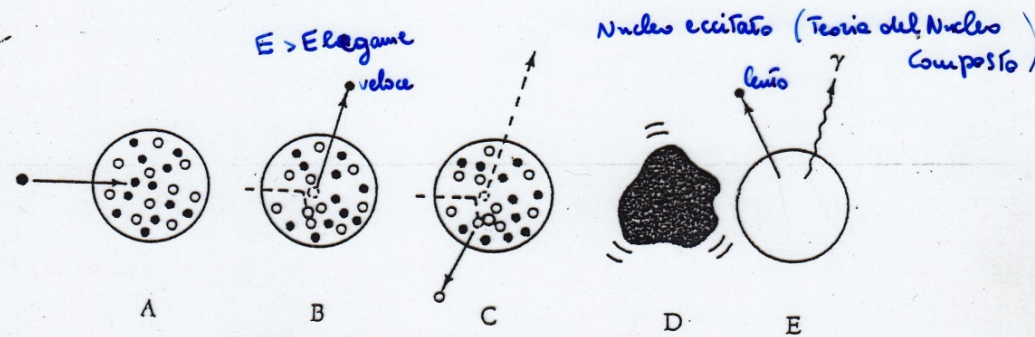 E > Elegame
veloce
Nucleo eccitato (Teoria del Nucleo
Composto)
lento
γ
A B C D E